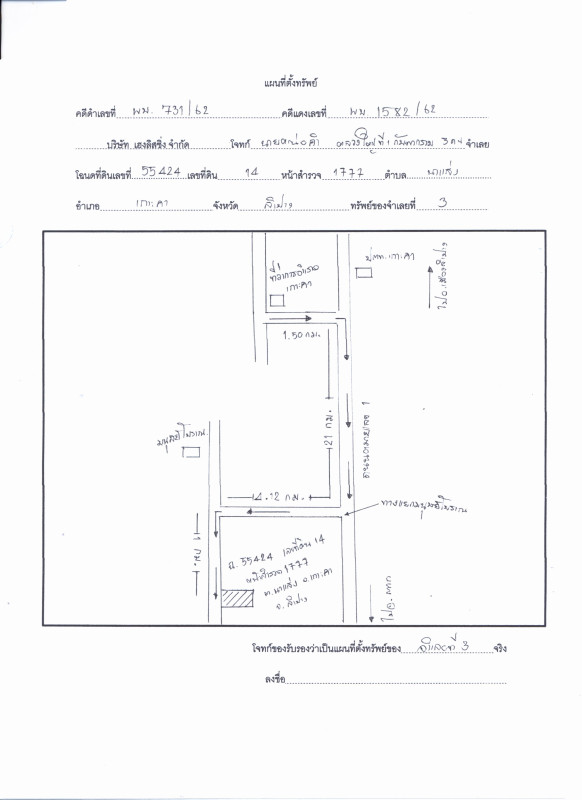 แผนที่ตั้งทรัพย์
คดีดำเลขที่ พม. 731/62 คดีแดงเลขที่ พม 1582/62
บริษัท เฮงลิสซิ่ง จำกัด โจทก์ นาย ที่ 1 กับพวกรวม 3 คน จำเลย
โฉนดที่ดินเลขที่ 55424 เลขที่ดิน 14 หน้าสำรวจ 1777 ตำบล นาแส่ง
อำเภอ เกาะคา จังหวัด ลำปาง ทรัพย์ของจำเลยที่ 3
ที่ว่าการอำเภอ
เกาะคา
ปตท. เกาะคา
ไป อ.เมืองลำปาง
1.50 กม.
21 กม.
ถนนพหลโยธิน 1
มนุษย์โบราณ
4.12 กม.
ทางแยกมนุษย์โบราณ
1 กม.
ฉ. 55424 เลขที่ดิน 14
หน้าสำรวจ 1777
ต.นาแส่ง อ.เกาะคา
จ.ลำปาง
ไป จ. ตาก
โจทก์ขอรับรองว่าเป็นแผนที่ตั้งทรัพย์ของ จำเลยที่ 3 จริง
ลงชื่อ